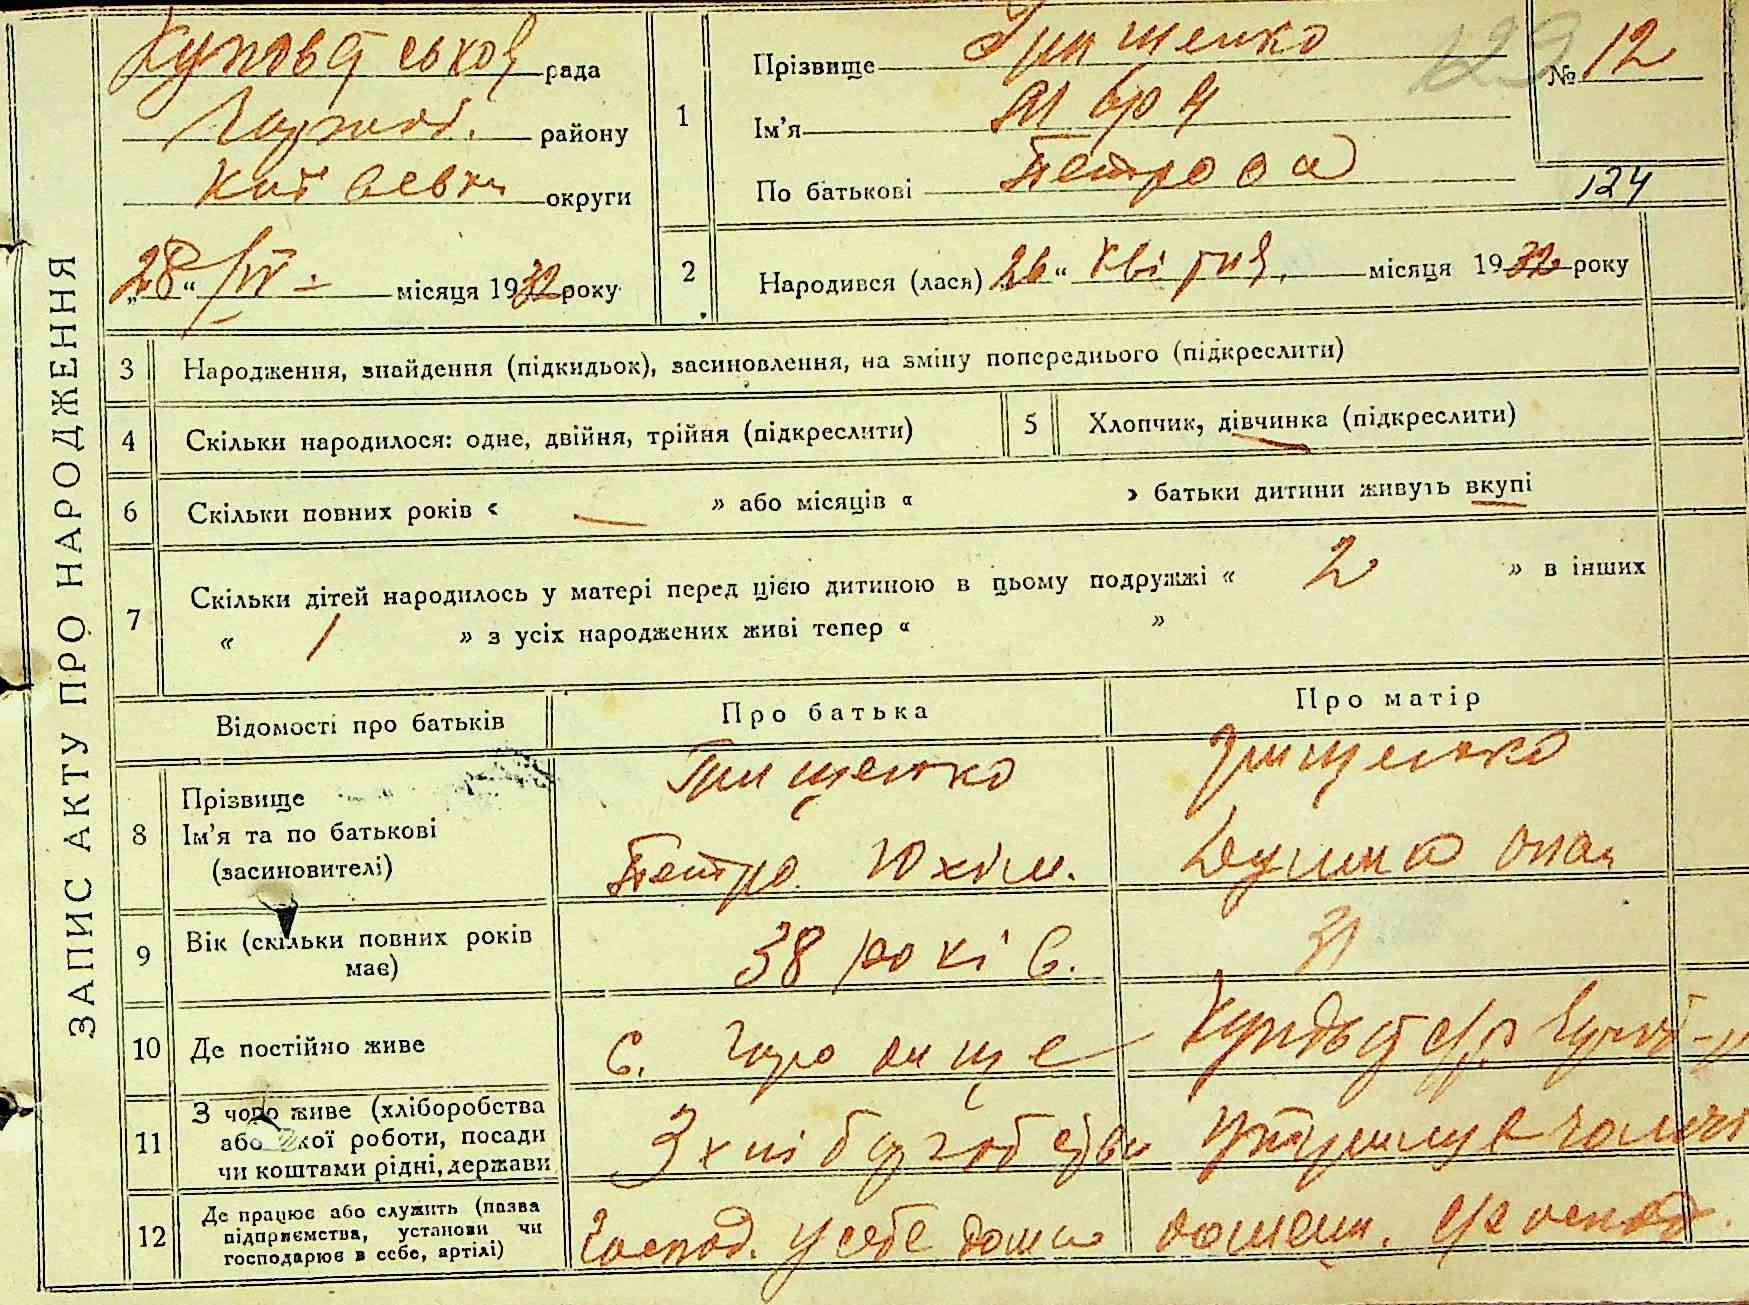 ЗАПИС АКТУ ПРО НАРОДЖЕННЯ
рада
району
округи
„28“ IV місяця 1932 року
1
Прізвище Грищенко
Ім'я
По батькові Петрова
№ 12
123
124
2
Народився (лася) „26“ квітня місяця 1932 року
3 Народження, знайдення (підкидьок), засиновлення, на зміну попереднього (підкреслити)
4 Скільки народилося: одне, двійня, трійня (підкреслити)
5 Хлопчик, дівчинка (підкреслити)
6 Скільки повних років « — » або місяців « » батьки дитини живуть вкупі
7 Скільки дітей народилось у матері перед цією дитиною в цьому подружжі « 2 » в інших
« 1 » з усіх народжених живі тепер « »
Відомості про батьків
Про батька
Про матір
8
Прізвище
Ім'я та по батькові
(засиновителі)
Грищенко
Петро Юхим.
Грищенко
9
Вік (скільки повних років
має)
38 років.
31
10 Де постійно живе
с.
11
З чого живе (хліборобства
або якої роботи, посади
чи коштами рідні, держави
З хліборобства
12
Де працює або служить (назва
підприємства, установи чи
господарює в себе, артілі)
Господ. у себе дома